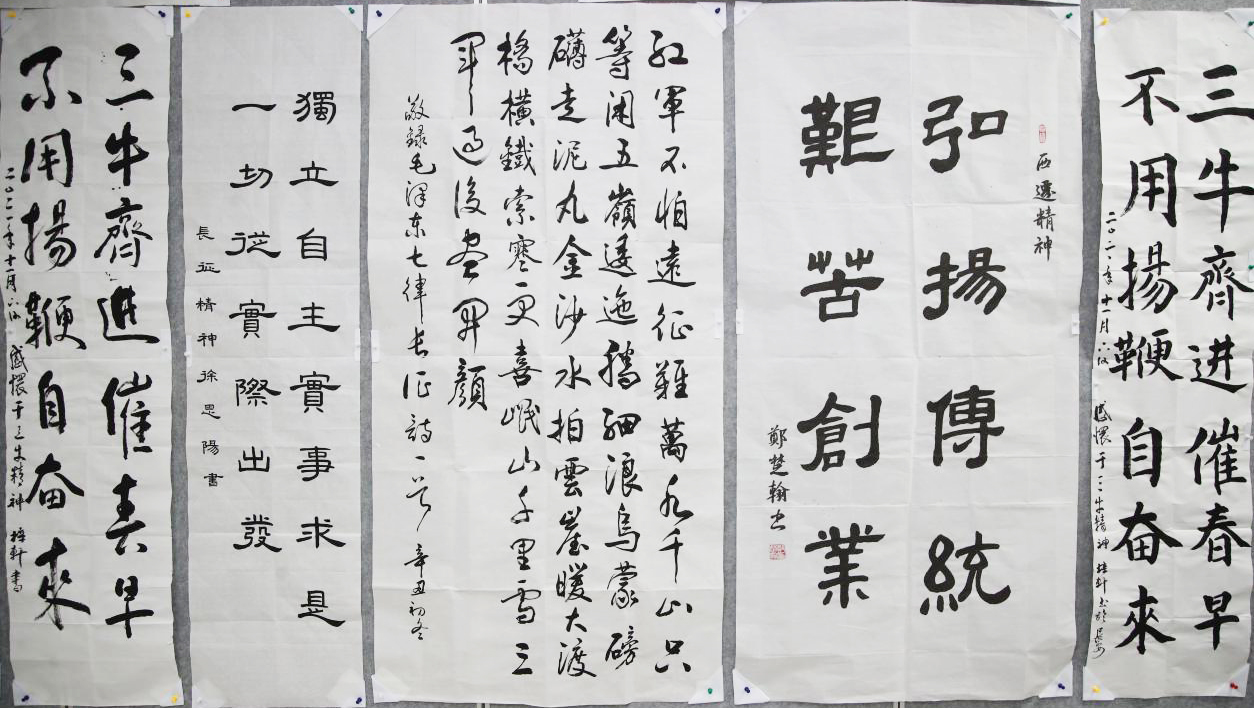 三牛齊进催春早
不用揚鞭自奋來
二〇二一年十一月 感懷于三牛精神
西遷精神
弘揚傳統
艱苦創業
鄭楚翰书
红軍不怕遠征難萬水千山只
等闲五嶺逶迤騰細浪烏蒙磅
礴走泥丸金沙水拍雲崖暖大渡
橋橫鐵索寒更喜岷山千里雪三
軍过後尽開顏
敬録毛澤东七律长征詩一首 辛丑初冬
獨立自主實事求是
一切從實際出發
長征精神徐思陽書
三牛齊進催春早
不用揚鞭自奋來
二〇二一年十一月 感懷于三牛精神